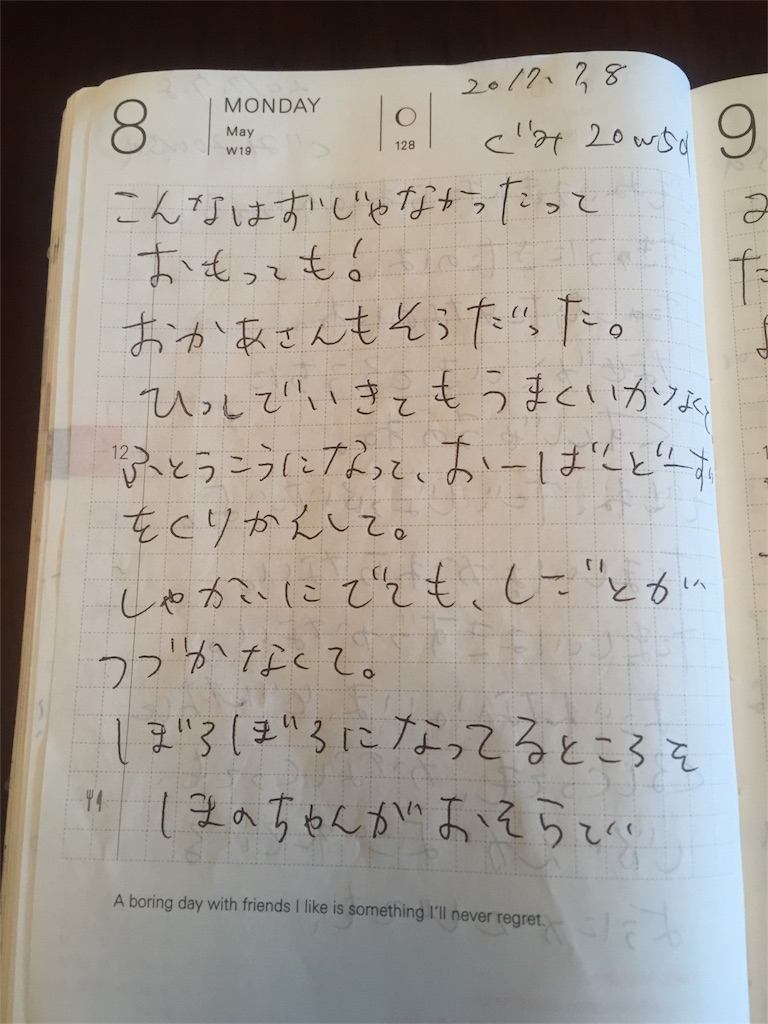 2017.7.8
8 MONDAY
May
W19
128
ぐみ 20w5d
9
こんなはずじゃなかったって
おもっても!
おかあさんもそうだった。
ひっしでいきてもうまくいかなくて
12
ふとうこうになって、おーばーどーず
をくりかえして。
しゃかいにでても、しごとが
つづかなくて。
ぼろぼろになってるところを
ほのちゃんがおそらで
A boring day with friends I like is something I'll never regret.